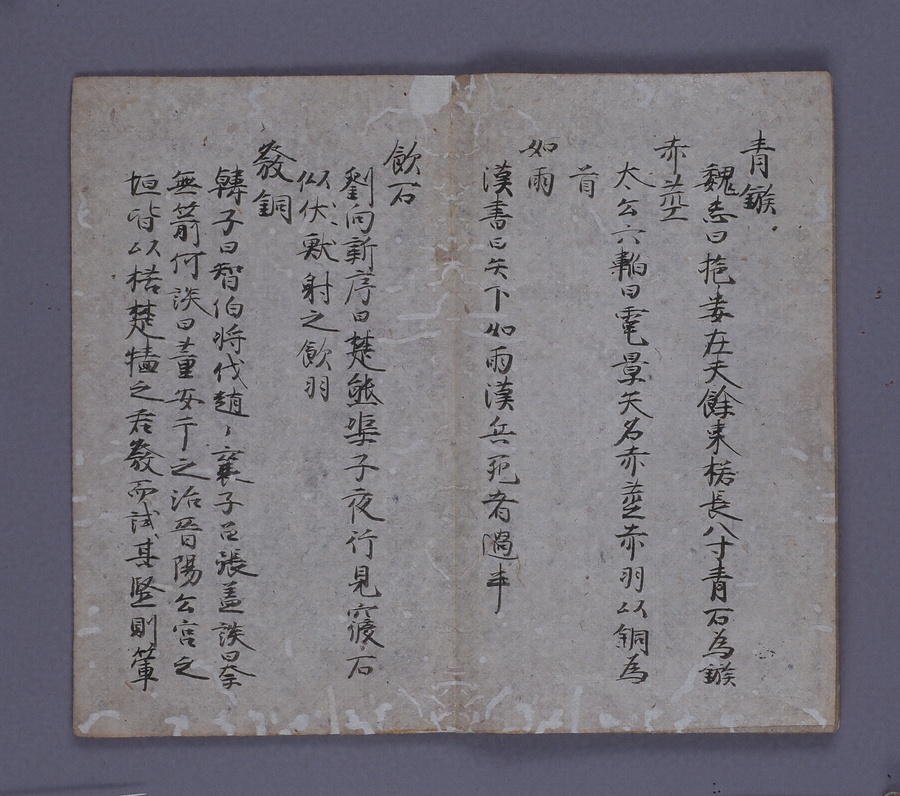 青鏃
魏志曰挹婁在夫餘東楛長八寸青石為鏃
赤莖
太公六韜曰電景矢名赤莖赤羽以銅為
首
如雨
漢書曰矢下如雨漢兵死者過半
飲石
劉向新序曰楚熊渠子夜行見寢石
似伏獸射之飲羽
發銅
韓子曰智伯將伐趙〻襄子召張孟談曰奈
無箭何談曰董安于之治晉陽公宮之
垣皆以楛楚牆之君發而試其堅則箘